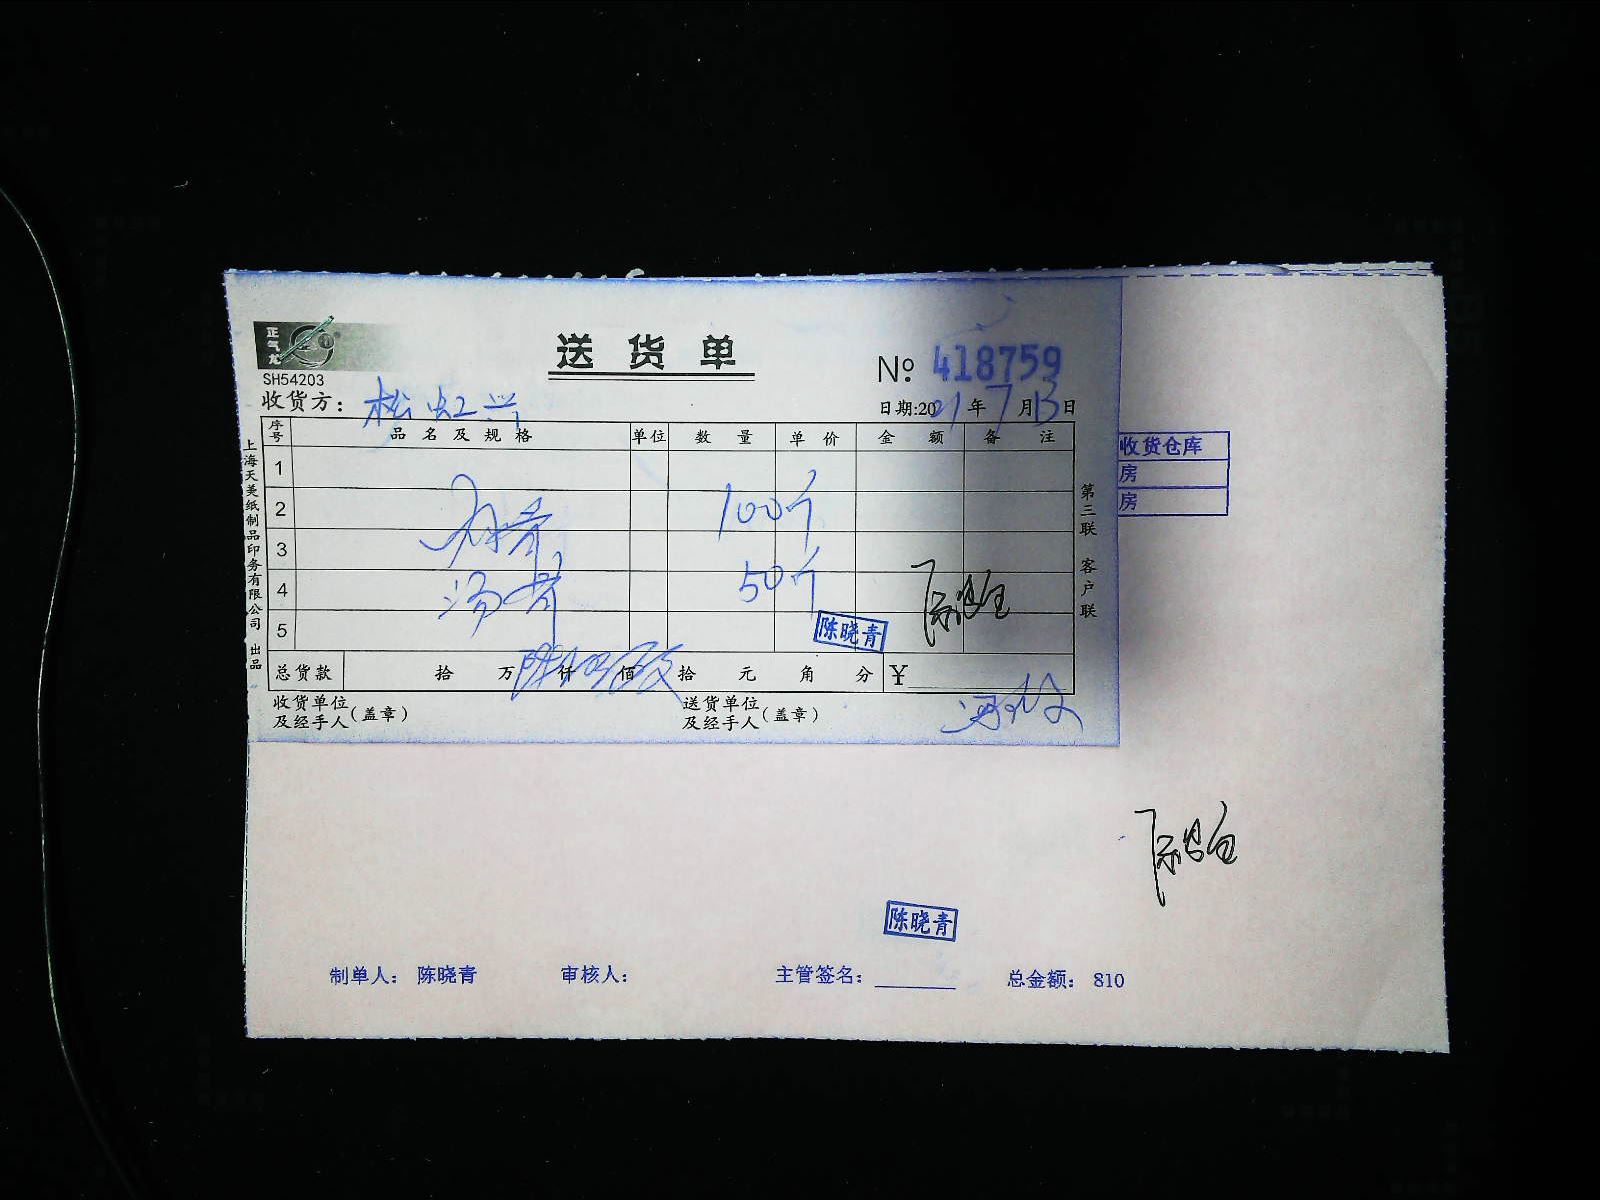 正气龙
SH54203
送货单
№ 418759
收货方: 松虹兴
日期:2021年7月13日
序号 品名及规格 单位 数量 单价 金额 备注
1
2 100个
3
4 50个
5
陈晓青
总货款 拾 万 仟 佰 拾 元 角 分 ¥
收货单位及经手人(盖章)
送货单位及经手人(盖章)
上海天美纸制品印务有限公司 出品
第三联 客户联
收货仓库
房
房
陈晓青
制单人: 陈晓青 审核人: 主管签名: 总金额: 810